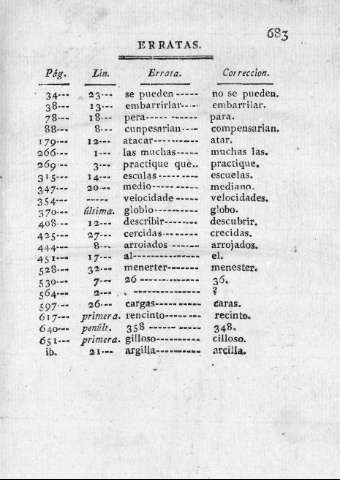 683
ERRATAS.
Pág. Lin. Errata. Correccion.
34--- 23--- se pueden ----- no se pueden.
38--- 13--- embarrirlar---- embarrilar.
78--- 18--- pera----- ----- para.
88--- 8--- cunpesarian---- compensarian.
179--- 12--- atacar--------- atar.
266--- 1--- las muchas----- muchas las.
269--- 3--- practique que.. practique.
315--- 14--- esculas -------- escuelas.
347--- 20--- medio---------- mediano.
354--- ----- velocidade ----- velocidades.
370--- última. globio --------- globo.
408--- 12--- describir------- descubrir.
425--- 27--- cercidas ------- crecidas.
444--- 8--- arroiados ------- arrojados.
451--- 17--- al------------- el.
528--- 32--- menerter------- menester.
530--- 7--- 26 ------------ 36.
564--- 2--- . ------------- ?
597-- 26--- cargas--------- caras.
617--- primera. rencinto-------- recinto.
640--- penúlt. 358 ----------- 348.
651--- primera. gilloso--------- cilloso.
ib. 21--- argilla--------- arcilla.